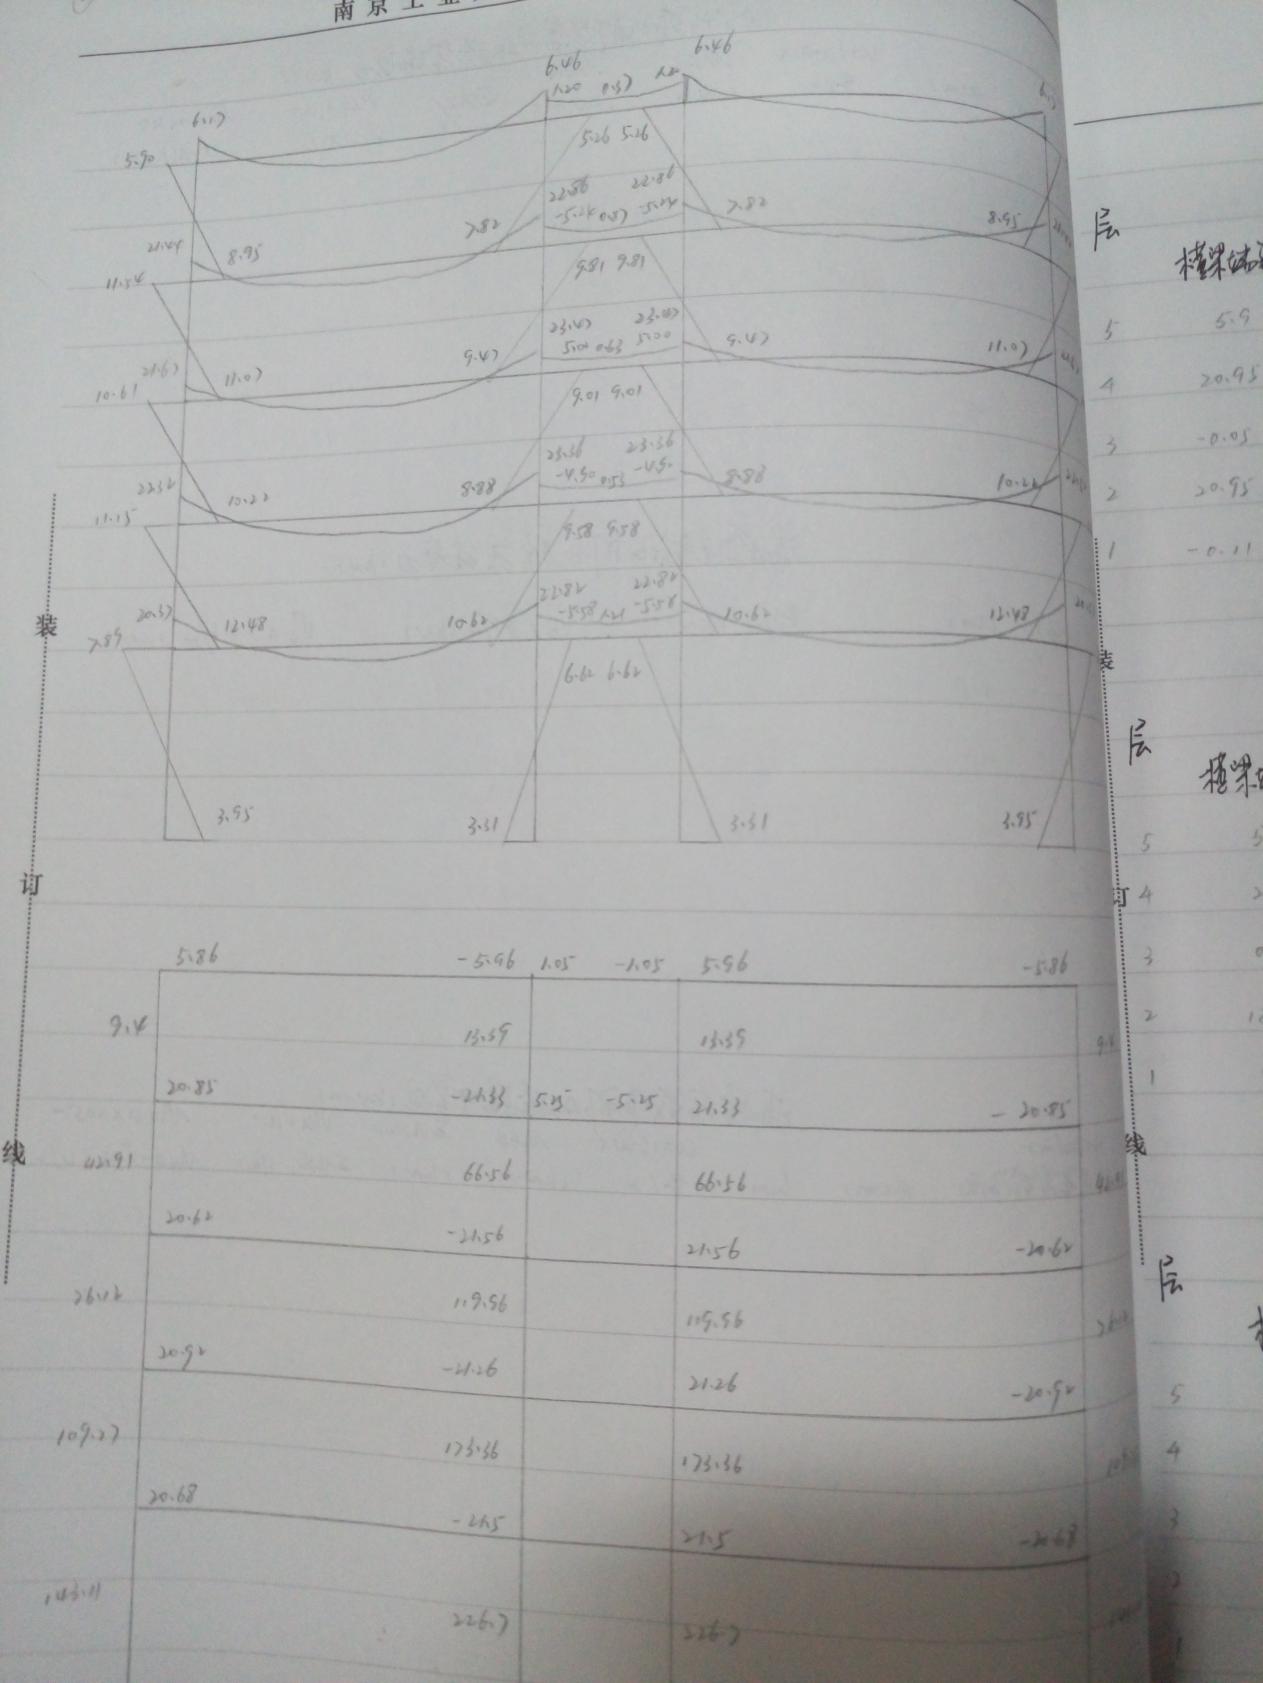 南京工业
6.46 6.46
1.20 0.37 1.20
6.17
5.90
5.26 5.26
22.86 22.86
-5.24 0.57 -5.24
7.82 7.82
21.44 8.95 8.95
11.54
9.81 9.81
23.47 23.47
5.00 0.63 5.00
9.47 9.47
21.67 11.07 11.07
10.61
9.01 9.01
23.36 23.36
-4.50 0.53 -4.50
8.88 8.88
22.32 10.22 10.22
11.15
9.58 9.58
22.82 22.82
-5.58 1.21 -5.58
20.37 12.48 10.62 10.62 12.48
7.89
6.62 6.62
3.95 3.31 3.31 3.95
5.86 -5.96 1.05 -1.05 5.96 -5.86
9.4 13.39 13.39 9.4
20.85 -21.33 5.25 -5.25 21.33 -20.85
42.91 66.56 66.56
20.62 -21.56 21.56 -20.62
26.12 119.96 119.96
20.92 -21.26 21.26 -20.92
109.27 173.36 173.36
20.68 -21.5 21.5 -20.68
143.11 226.7 226.7
装
订
线
层
横梁
5 5.9
4 20.95
3 -0.05
2 20.95
1 -0.11
装
层
横梁
5
4
3
2
1
订
线
层
5
4
3
2
1